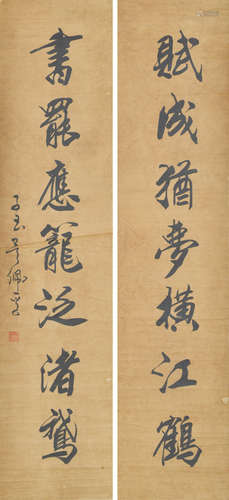 賦成猶夢橫江鶴
書罷應籠泛渚鵞
子玉吳佩孚